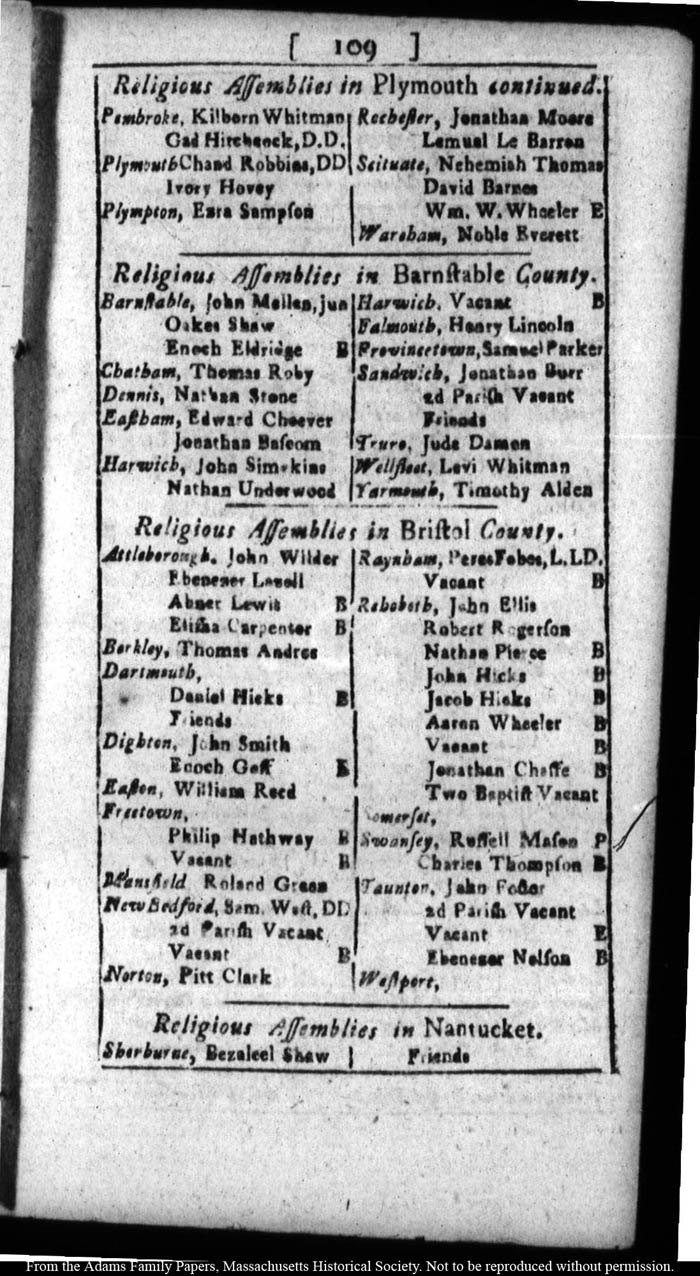 [ 109 ]
Religious Aſſemblies in Plymouth continued.
Pembroke, Kilborn Whitman
Gad Hitchcock, D.D.
Plymouth Chand Robbins, DD
Ivory Hovey
Plympton, Ezra Sampſon
Rocheſter, Jonathan Moore
Lemuel Le Barron
Scituate, Nehemiah Thomas
David Barnes
Wm. W. Wheeler E
Wareham, Noble Everett
Religious Aſſemblies in Barnſtable County.
Barnſtable, John Mellen, jun
Oakes Shaw
Enoch Eldridge B
Chatham, Thomas Roby
Dennis, Nathan Stone
Eaſtham, Edward Cheever
Jonathan Baſcom
Harwich, John Simpkins
Nathan Underwood
Harwich, Vacant B
Falmouth, Henry Lincoln
Provincetown, Samuel Parker
Sandwich, Jonathan Burr
2d Pariſh Vacant
Friends
Truro, Jude Damon
Wellfleet, Levi Whitman
Yarmouth, Timothy Alden
Religious Aſſemblies in Briſtol County.
Attleborough, John Wilder
Ebenezer Lazell
Abner Lewis B
Eliſha Carpenter B
Berkley, Thomas Andros
Dartmouth,
Daniel Hicks B
Friends
Dighton, John Smith
Enoch Goff B
Eaſton, William Reed
Freetown,
Philip Hathway B
Vacant B
Mansfield Roland Green
New Bedford, Sam. Weſt, DD
2d Pariſh Vacant
Vacant B
Norton, Pitt Clark
Raynham, Peres Fobes, L.LD.
Vacant B
Rehoboth, John Ellis
Robert Rogerſon
Nathan Pierce B
John Hicks B
Jacob Hicks B
Aaron Wheeler B
Vacant B
Jonathan Chaffe B
Two Baptiſt Vacant
Somerſet,
Swanſey, Ruſſell Maſon P
Charles Thompſon B
Taunton, John Foſter
2d Pariſh Vacant
Vacant E
Ebenezer Nelſon B
Weſtport,
Religious Aſſemblies in Nantucket.
Sherburne, Bezaleel Shaw
Friends
From the Adams Family Papers, Massachusetts Historical Society. Not to be reproduced without permission.